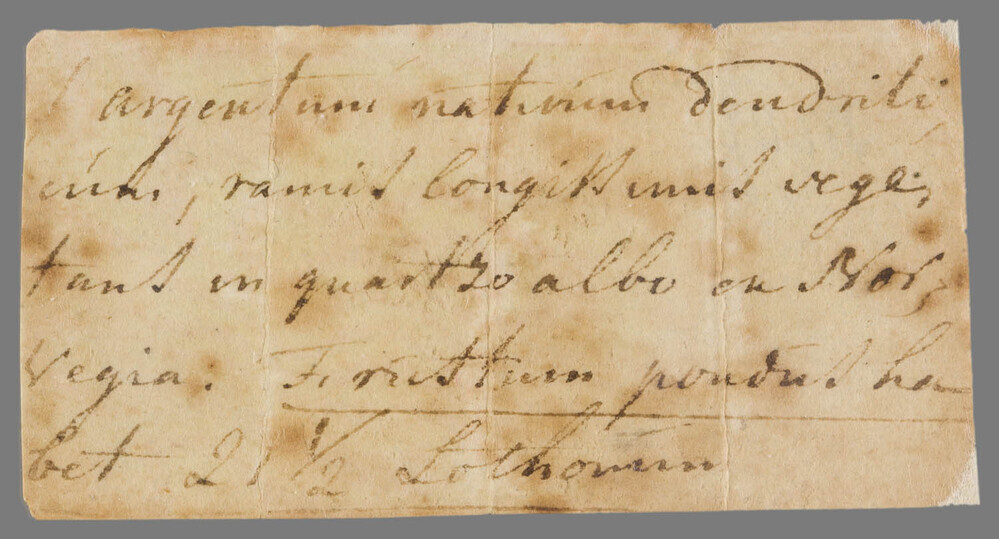 argentum nativum dendriti,
cum, ramis longissimis vege,
tans in quartzo albo ex Nor,
vegia. Frustum pondus ha
bet 21 1/2 Lothonum